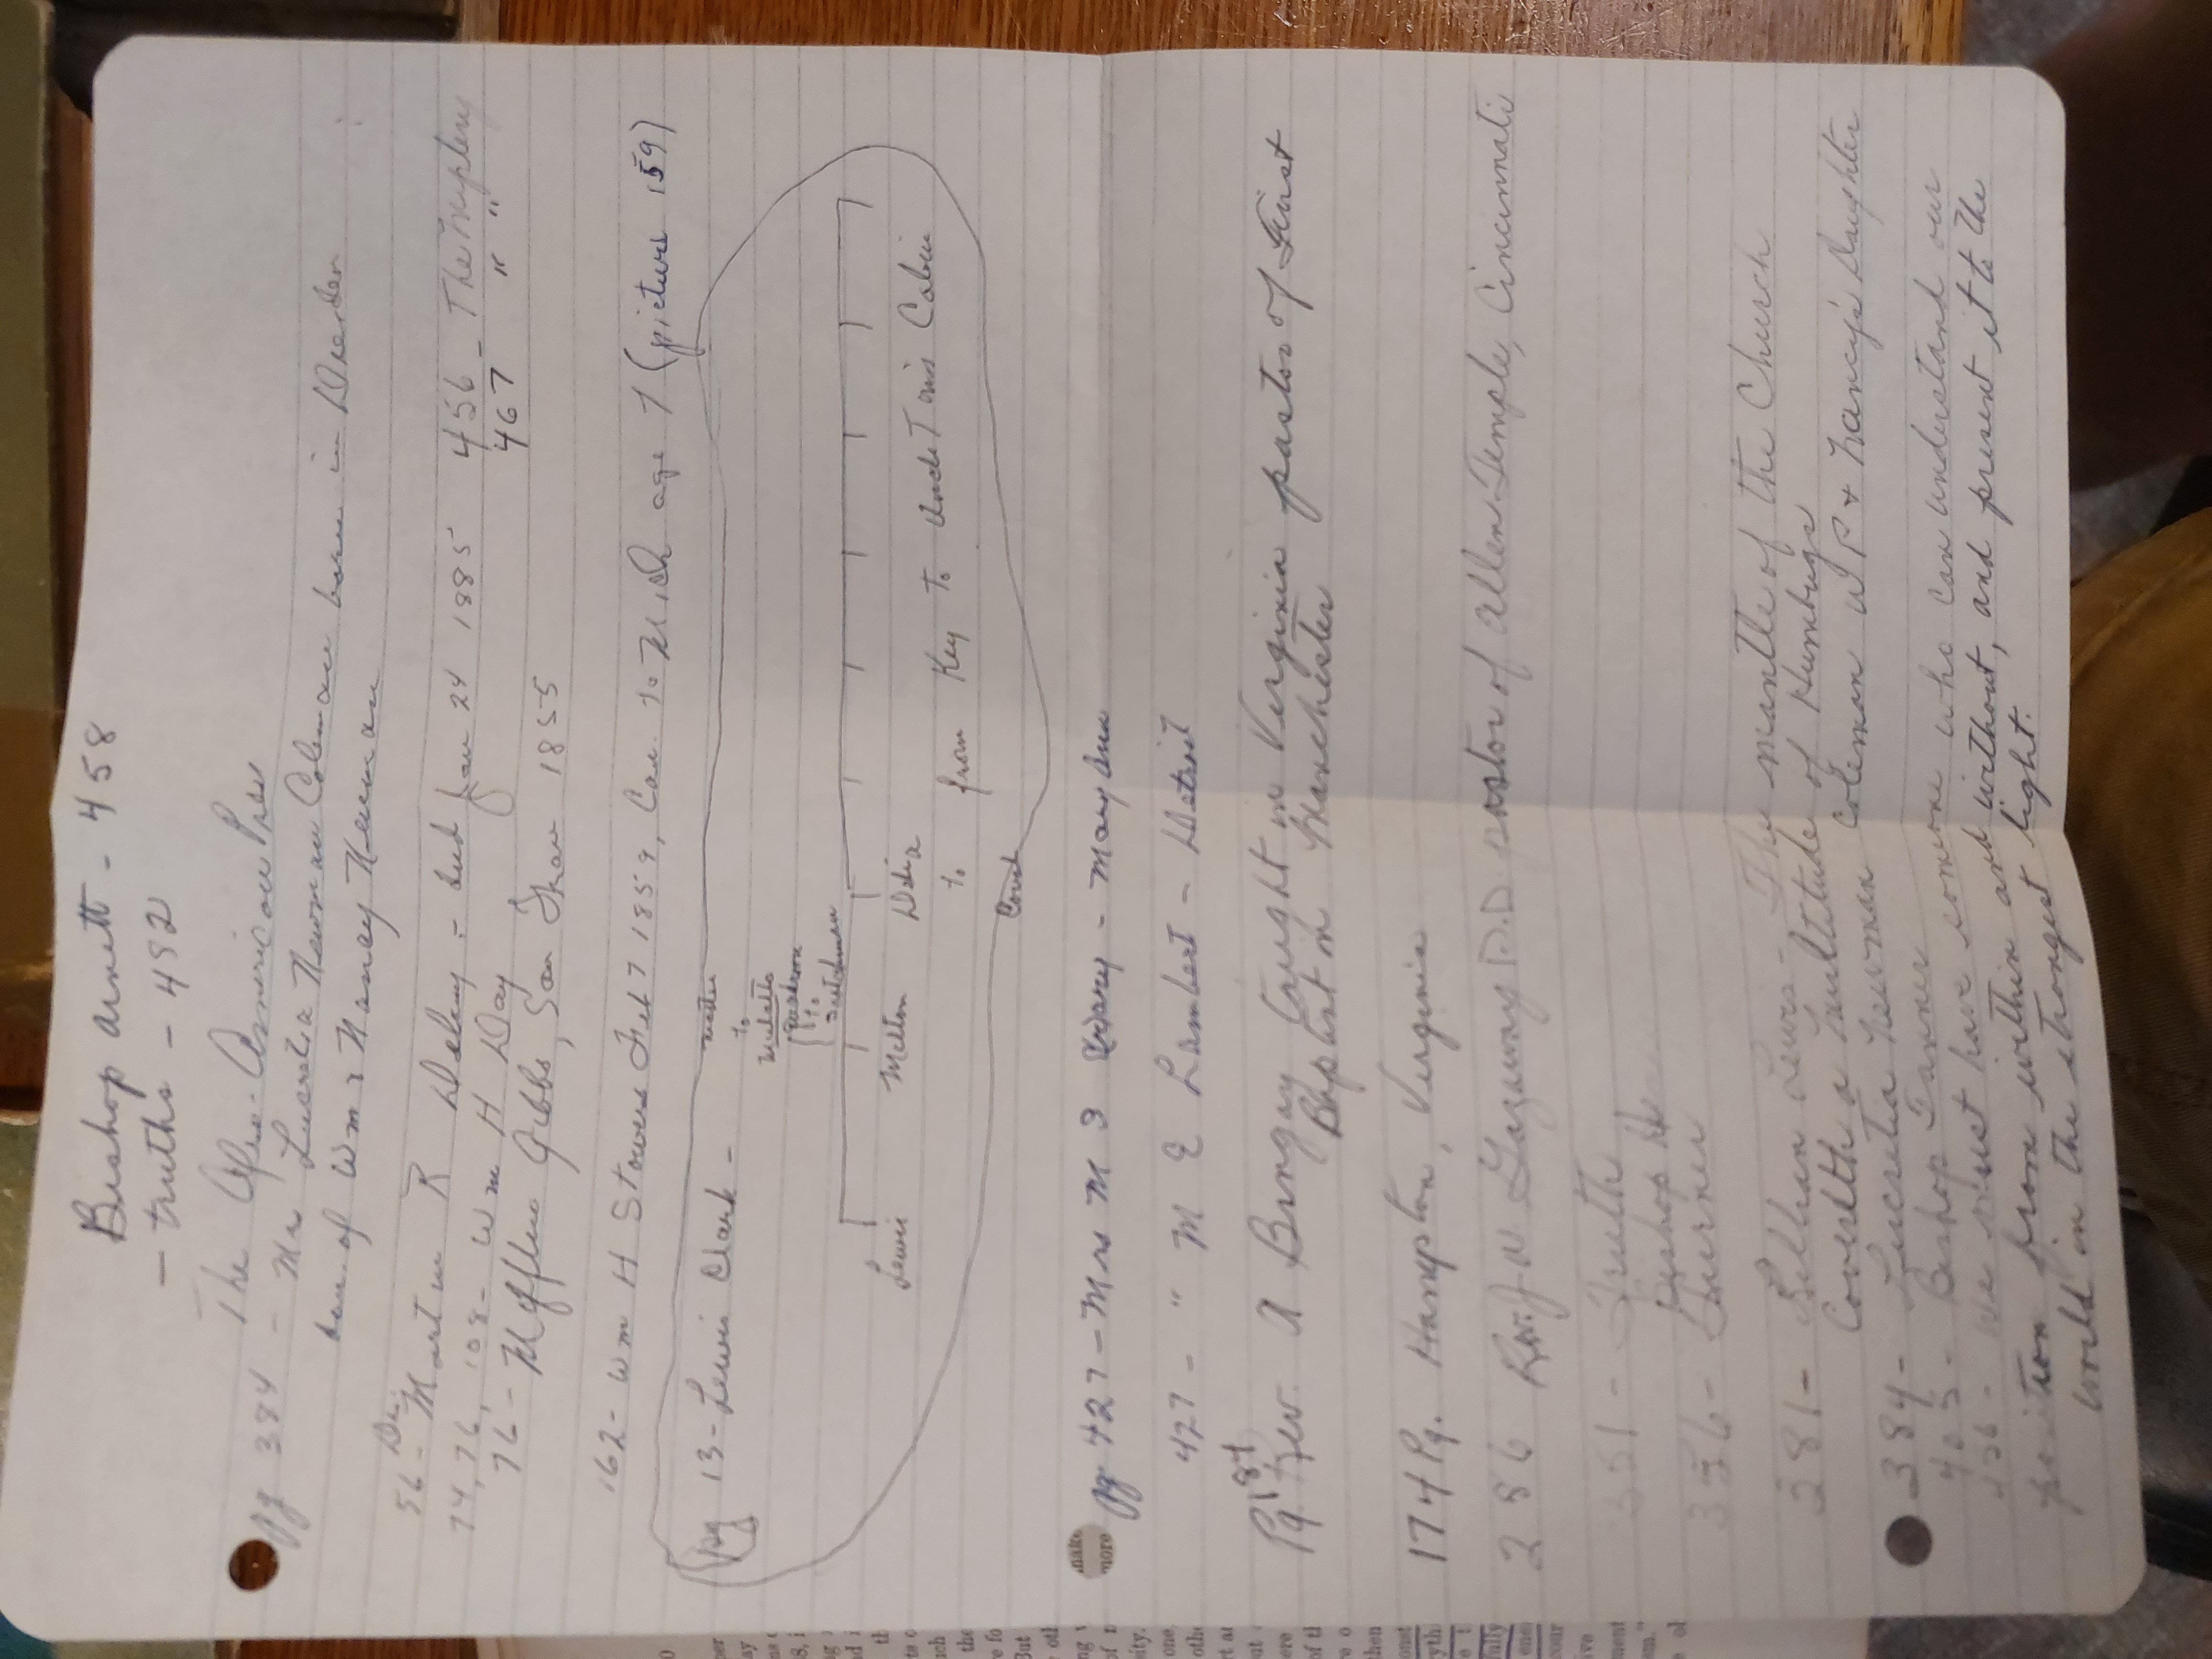 Bishop Arnett - 458
- truths - 482
The Afro-American Press
Pg 384 - Mrs Lucretia Newman Coleman born in Dresden
Dau. of Wm & Nancy Newman
56 - Dr. Martin R Delany - died Jan 24 1885
456 - The Triplery
74, 76, 108 - Wm H Day
467 " "
76 - Mifflin Gibbs, San Fran 1855
162 - Wm H Stowers Feb 7 1859, Can. to Mich age 7 (pictures 159)
pg 13 - Lewis Clark -
to
Mulatto
Quadroon
to
Lewis Milton Delia
to from Key to Uncle Toms Cabin
Court
Pg. 427 - Mrs M 3 - Mary Ann
427 - " M E Lambert - Detroit
Pg 184 Rev. A Bingay taught in Virginia pastor of First
Baptist in Manchester
174 Pg. Hampton, Virginia
286 Rev J W Gazaway D.D pastor of Allen Temple, Cincinnati
351 - Truths
Bishop H
356 - Turner
381 - Lillian Lewis - The mantle of the Church
Covereth a Multitude of Humbugs
384 - Lucretia Newman Coleman W P & Nancy's Daughter
403 - Bishop Tanner
526 - We must have someone who can understand our
position from within and without, and present it to the
world in the strongest light.
make
more